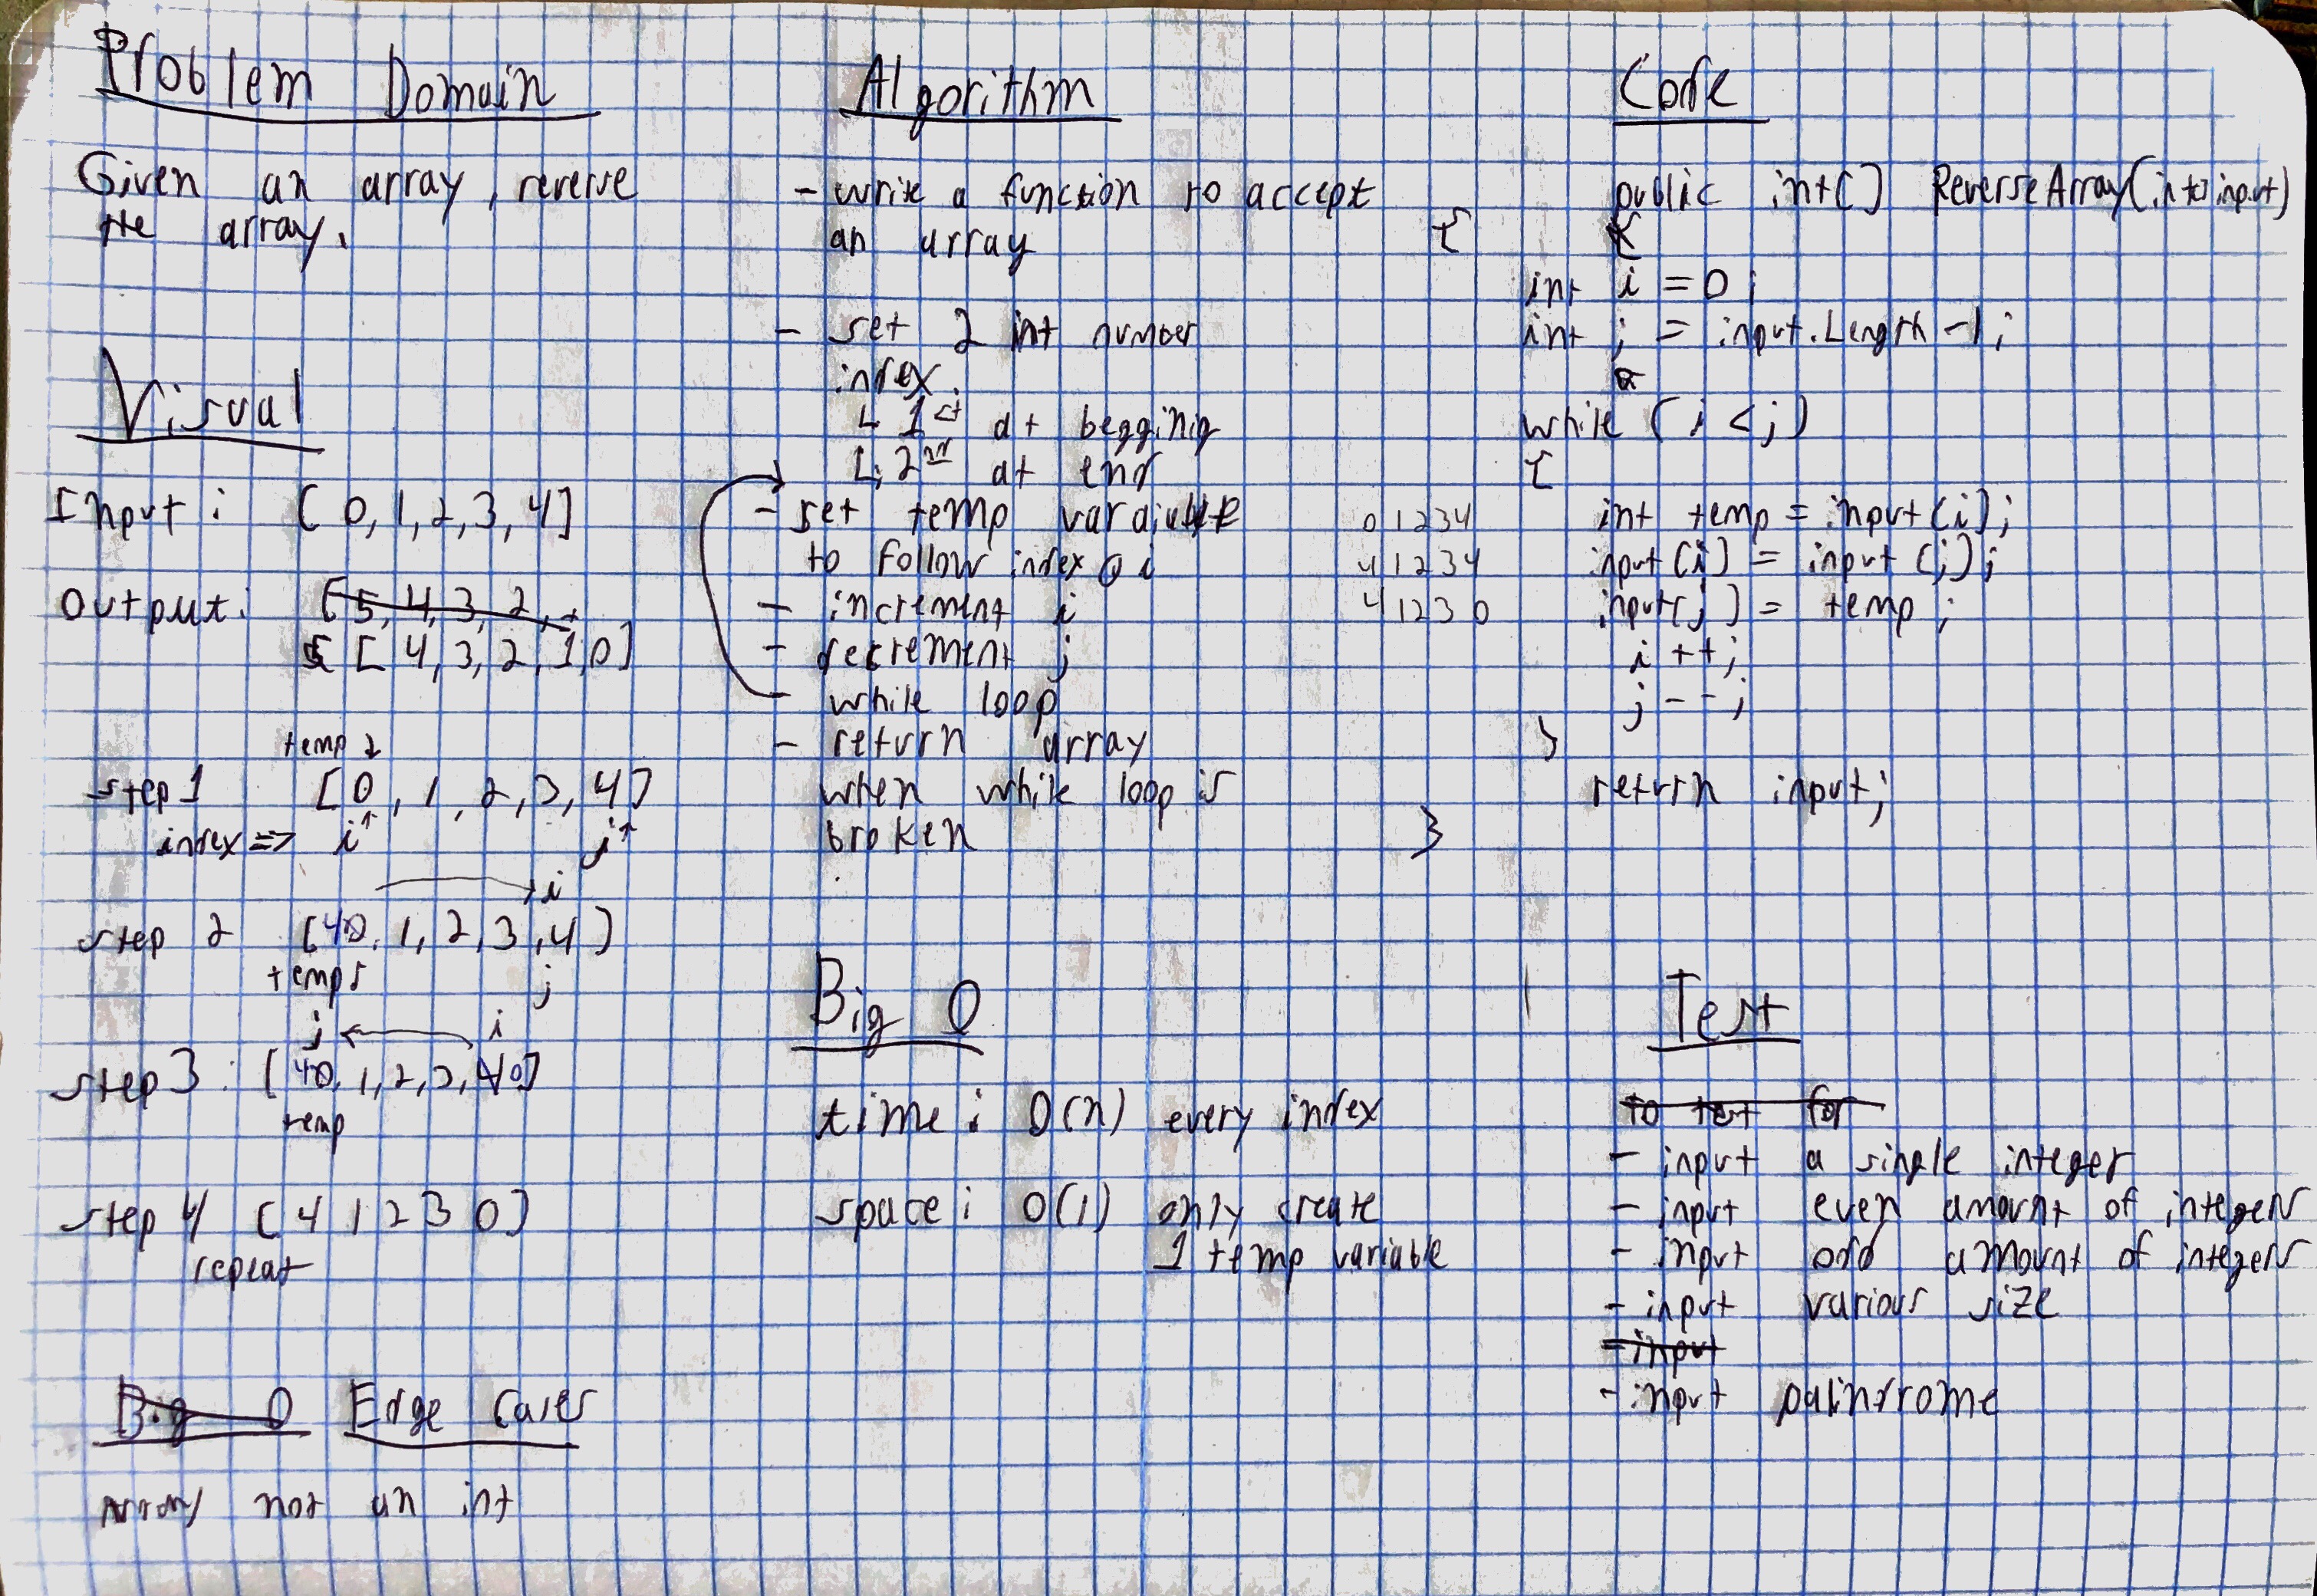 Problem Domain
Given an array, reverse
the array.
Visual
Input: [0, 1, 2, 3, 4]
Output: [5, 4, 3, 2,
[4, 3, 2, 1, 0]
temp
step 1 [0, 1, 2, 3, 4]
index => i↑ j↑
i
step 2 [40, 1, 2, 3, 4]
temp j
j ← i
step 3: [40, 1, 2, 3, 40]
temp
step 4 [4 1 2 3 0]
repeat
Big O Edge Cases
Array not an int
Algorithm
- write a function to accept
an array
- set 2 int number
index.
1st at beggining
2nd at end
- set temp
to follow index @ i
- increment i
- decrement j
- while loop
- return array
when while loop is
broken
Big O
time: O(n) every index
space: O(1) only create
1 temp variable
Code
public int[] ReverseArray(int[] input)
{
int i = 0;
int j = input.Length - 1;
while (i < j)
{
0 1 2 3 4 int temp = input[i];
4 1 2 3 4 input[i] = input[j];
4 1 2 3 0 input[j] = temp;
i++;
j--;
}
return input;
}
Test
to test for
- input a single integer
- input even amount of integers
- input odd amount of integers
- input various size
- input
- input palindrome